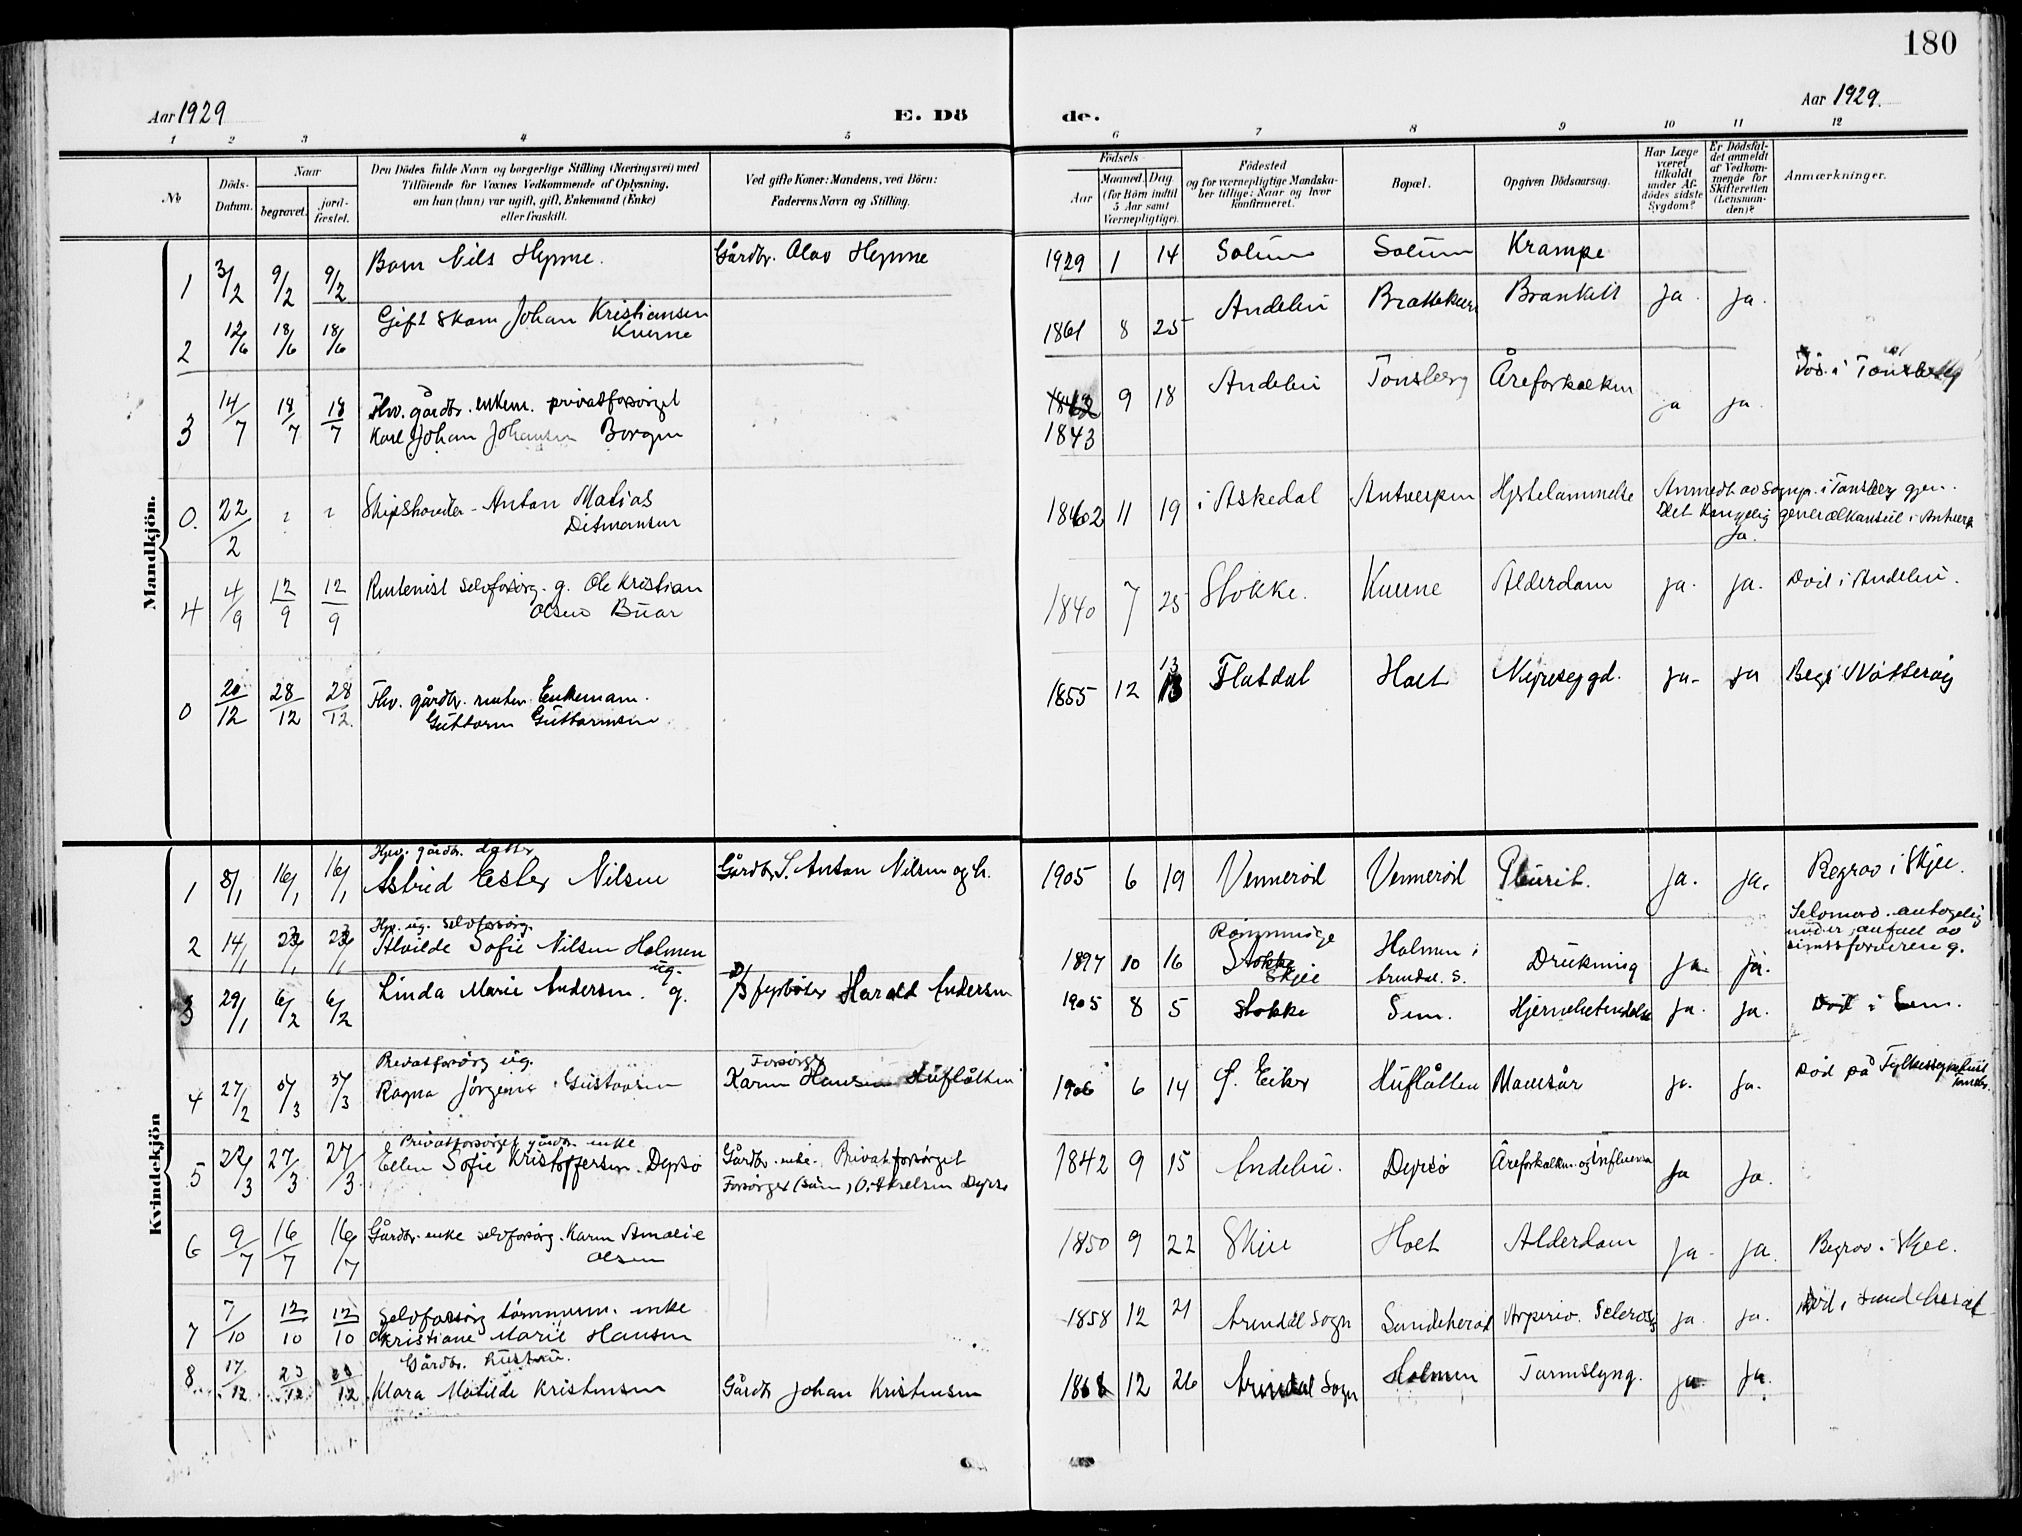 180
Aar 1929
E. Dö
de.
Aar 1929.
1 2 3 4 5 6 7 8 9 10 11 12
No
Döds-Datum.
Naar
begravet.
jord-fæstet.
Den Dödes fulde Navn og borgerlige Stilling (Næringsvei) med
Tilföiende for Voxnes Vedkommende af Oplysning,
om han (hun) var ugift, gift, Enkemand (Enke)
eller fraskilt.
Ved gifte Koner: Mandens, ved Börn:
Faderens Navn og Stilling.
Födsels
Aar
Maaned. Dag
(for Börn indtil
5 Aar samt
Værnepligtige).
Födested
og for værnepligtige Mandska-
ber tillige: Naar og hvor
konfirmeret.
Bopæl.
Opgiven Dödsaarsag.
Har Læge
været
tilkaldt
under Af-
dödes sidste
Sygdom?
Er Dödsfal-
det anmeldt
af Vedkom-
mende for
Skifteretten
(Lensman-
den)?
Anmærkninger.
Mandkjön.
1 3/2 9/2 9/2 Barn Nils Hynne. Gårdbr. Olav Hynne 1929 1 14 Solum Solum Krampe
2 12/6 18/6 18/6 Gift Johan Kristiansen
Kverne 1861 8 25 Andebu Ja. Ja.
3 14/7 18/7 18/7 Fhv. gårdbr. enkem. privatforsørget
Karl Johan Johansen Borgen
1843 9 18 Andebu Tønsberg Åreforkalkn ja ja. Død i Tønsberg
0. 22/2 Anton Matias
Ditmansen 1862 11 19 i Askedal Antwerpen Hjertelammelse
Anmeldt av Sognp. i Tønsberg gjen.
Det Kongelig generalkonsul i Antwerp
Ja.
4 4/9 12/9 12/9 Rentenist selvforsørg. g. Ole Kristian
Olsen Buar 1840 7 25 Stokke. Kverne Alderdom ja. ja. Død i Andebu.
0 20/12 28/12 28/12 Fhv. gårdbr. renten. Enkemann.
Guttorm Guttormsen 1855 12 13 Flatdal Holt ja. ja Begr i Nøtterøy
Kvindekjön
1 8/1 16/1 16/1 Hjv. gårdbr. datter
Astrid Ester Nilsen Gårdbr. S. Anton Nilsen og h. 1905 6 19 Vennerød Vennerød Pleurit. ja. ja. Begrav i Skjee.
2 14/1 Hjv. ug. selvforsørg.
Alvilde Sofie Nilsen Holmen
ug. 1897 10 16 Stokke
Skjee Holmen i
Arendal. S. Drukning ja. ja. Selvmord. antagelig
under anfald av
sinnsforvirring.
3 29/1 6/2 6/2 Linda Marie Andersen. g. fyrbøter Harald Andersen 1905 8 5 Stokke Sem. Hjernebetendelse ja. ja. Død i Sem.
4 27/2 5/3 5/3 Privatforsørg ug.
Ragna Jørgine Gustavsen Forsørget
Karen Hansen Huflåtten 1906 6 14 Ø. Eiker Huflåtten Mavesår ja. ja. Død på Fylkessykehuset
Tønsbr.
5 22/3 27/3 27/3 Privatforsørget gårdbr. enke
Ellen Sofie Kristoffersen. Dyrsø Gårdbr. enke. Privatforsørget
Forsørget (sønn) O. Axelsen Dyrsø 1842 9 15 Andebu. Dyrsø Åreforkalkn. og Influensa ja ja.
6 9/7 16/7 16/7 Gårdbr. enke selvforsørg. Karen Amalie
Olsen 1850 9 22 Skjee Holt Alderdom ja. ja. Begrav. i Skjee.
7 7/10 12/10 12/10 Selvforsørg tømmerm. enke
Kristiane Marie Hansen 1858 12 21 Arendal Sogn Sundeherad Arperio. Sclerosis ja. ja. Død i Sandeherad
8 17/12 23/12 23/12 Gårdbr. hustru.
Klara Matilde Kristensen Gårdbr Johan Kristensen 1868 12 26 Arendal Sogn Holmen Tarmslyng. ja. ja.